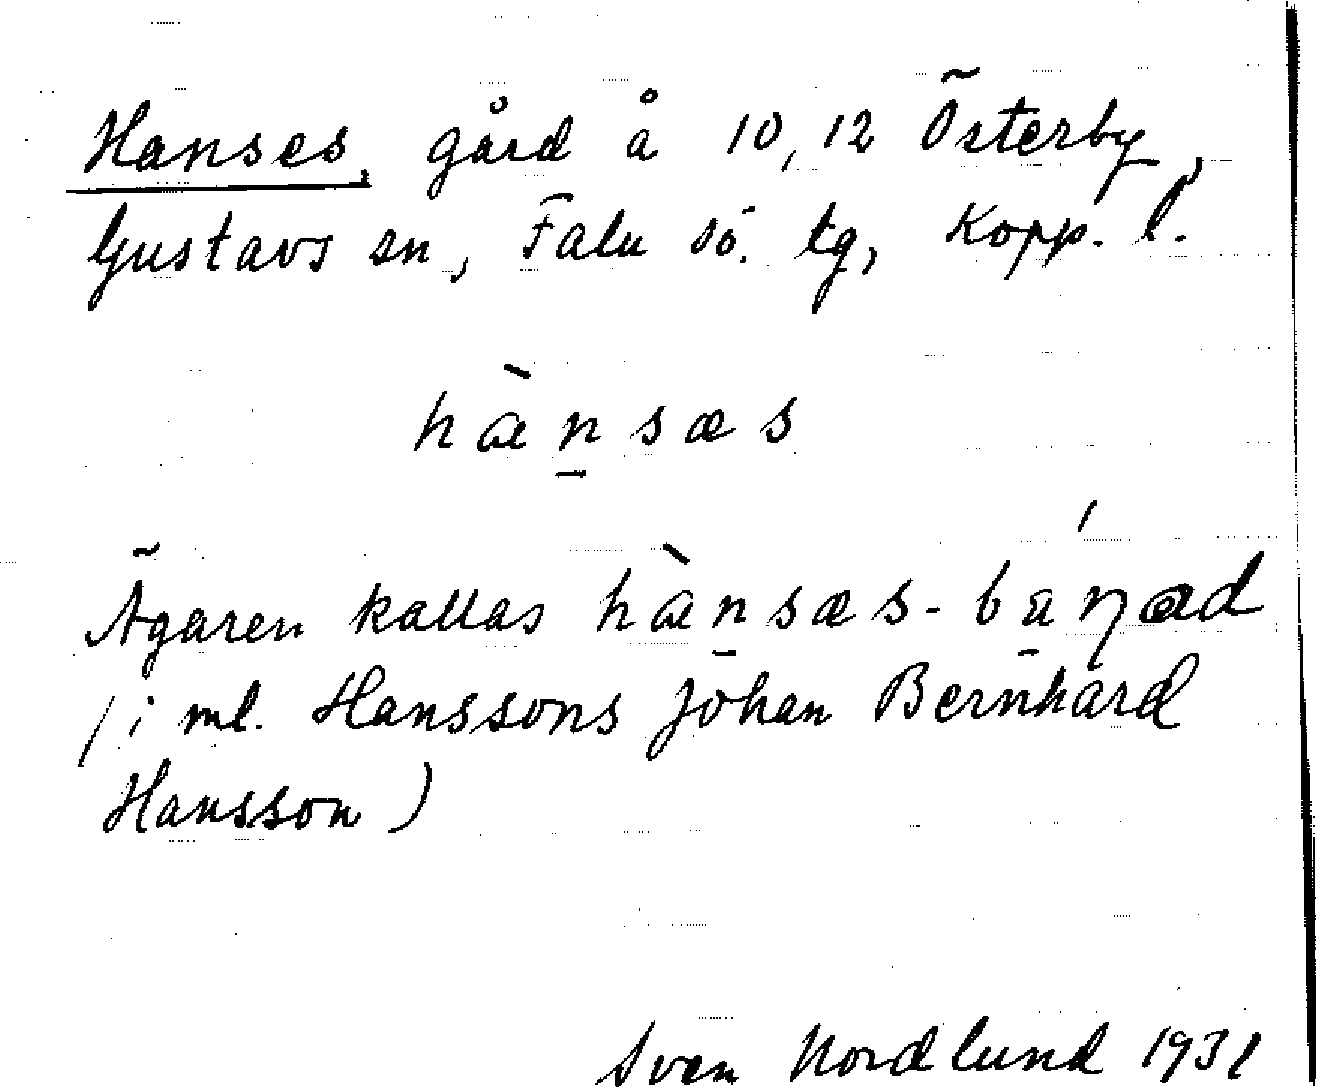 Hanses, gård å 10,12 Österby,
Gustavs sn, Falu sö. tg, Kopp. l.
hæ̀n̠sæs
Ägaren kallas hæ̀n̠sæs-ba̠ŋ́æd
(i ml. Hanssons Johan Bernhard
Hansson)
Sven Nordlund 1931